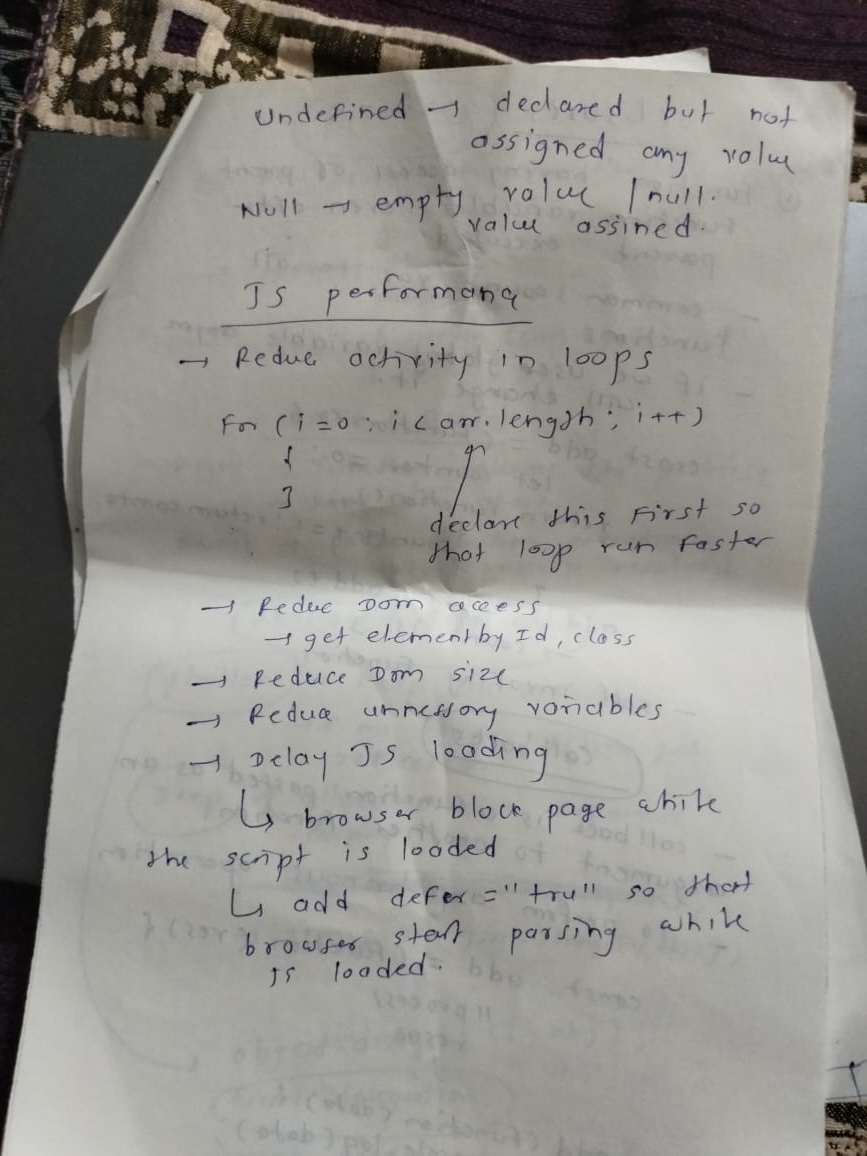 Undefined → declared but not
assigned any value
Null → empty value / null.
value assined.
JS performanc
→ Reduc activity in loops
For ( i = 0 ; i < arr.length ; i++ )
{
}
declare this First so
that loop run faster
→ Reduc DOM access
→ get element by Id, class
→ Reduce Dom size
→ Reduce unnessory variables
→ Delay JS loading
↳ browser block page while
the script is loaded
↳ add defer = "tru" so that
browser start parsing while
JS loaded.